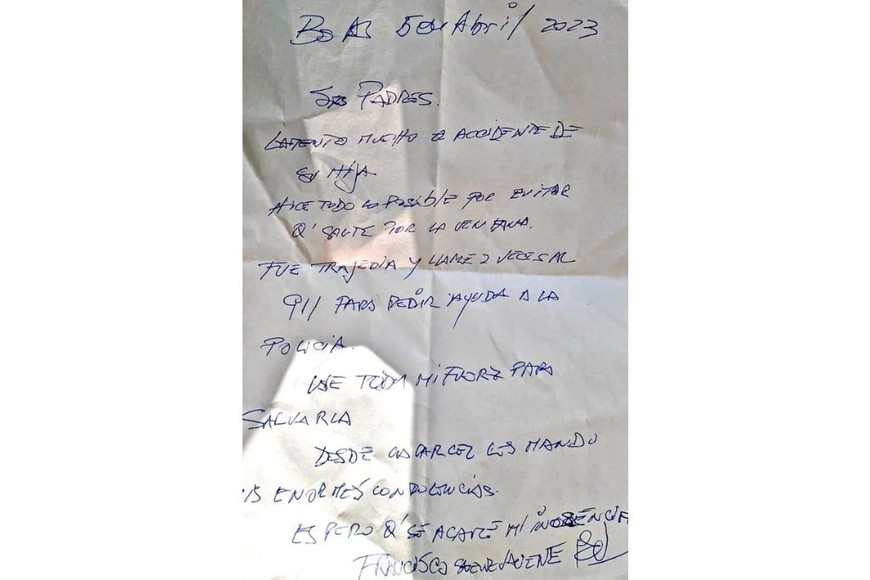 Bs As 5 de Abril 2023
Srs PADRES.
LAMENTO MUCHO EL ACCIDENTE DE
SU HIJA
HICE TODO LO POSIBLE POR EVITAR
Q' SALTE POR LA VENTANA.
FUE TRAJEDIA Y LLAME 2 VECES AL
911 PARA PEDIR AYUDA A LA
POLICIA.
USE TODA MI FUERZ PARA
SALVARLA
DESDE LA CARCEL LES MANDO
MIS ENORMES CONDOLENCIAS.
ESPERO Q' SE ACLARE MI INOSENCIA
FRANCISCO